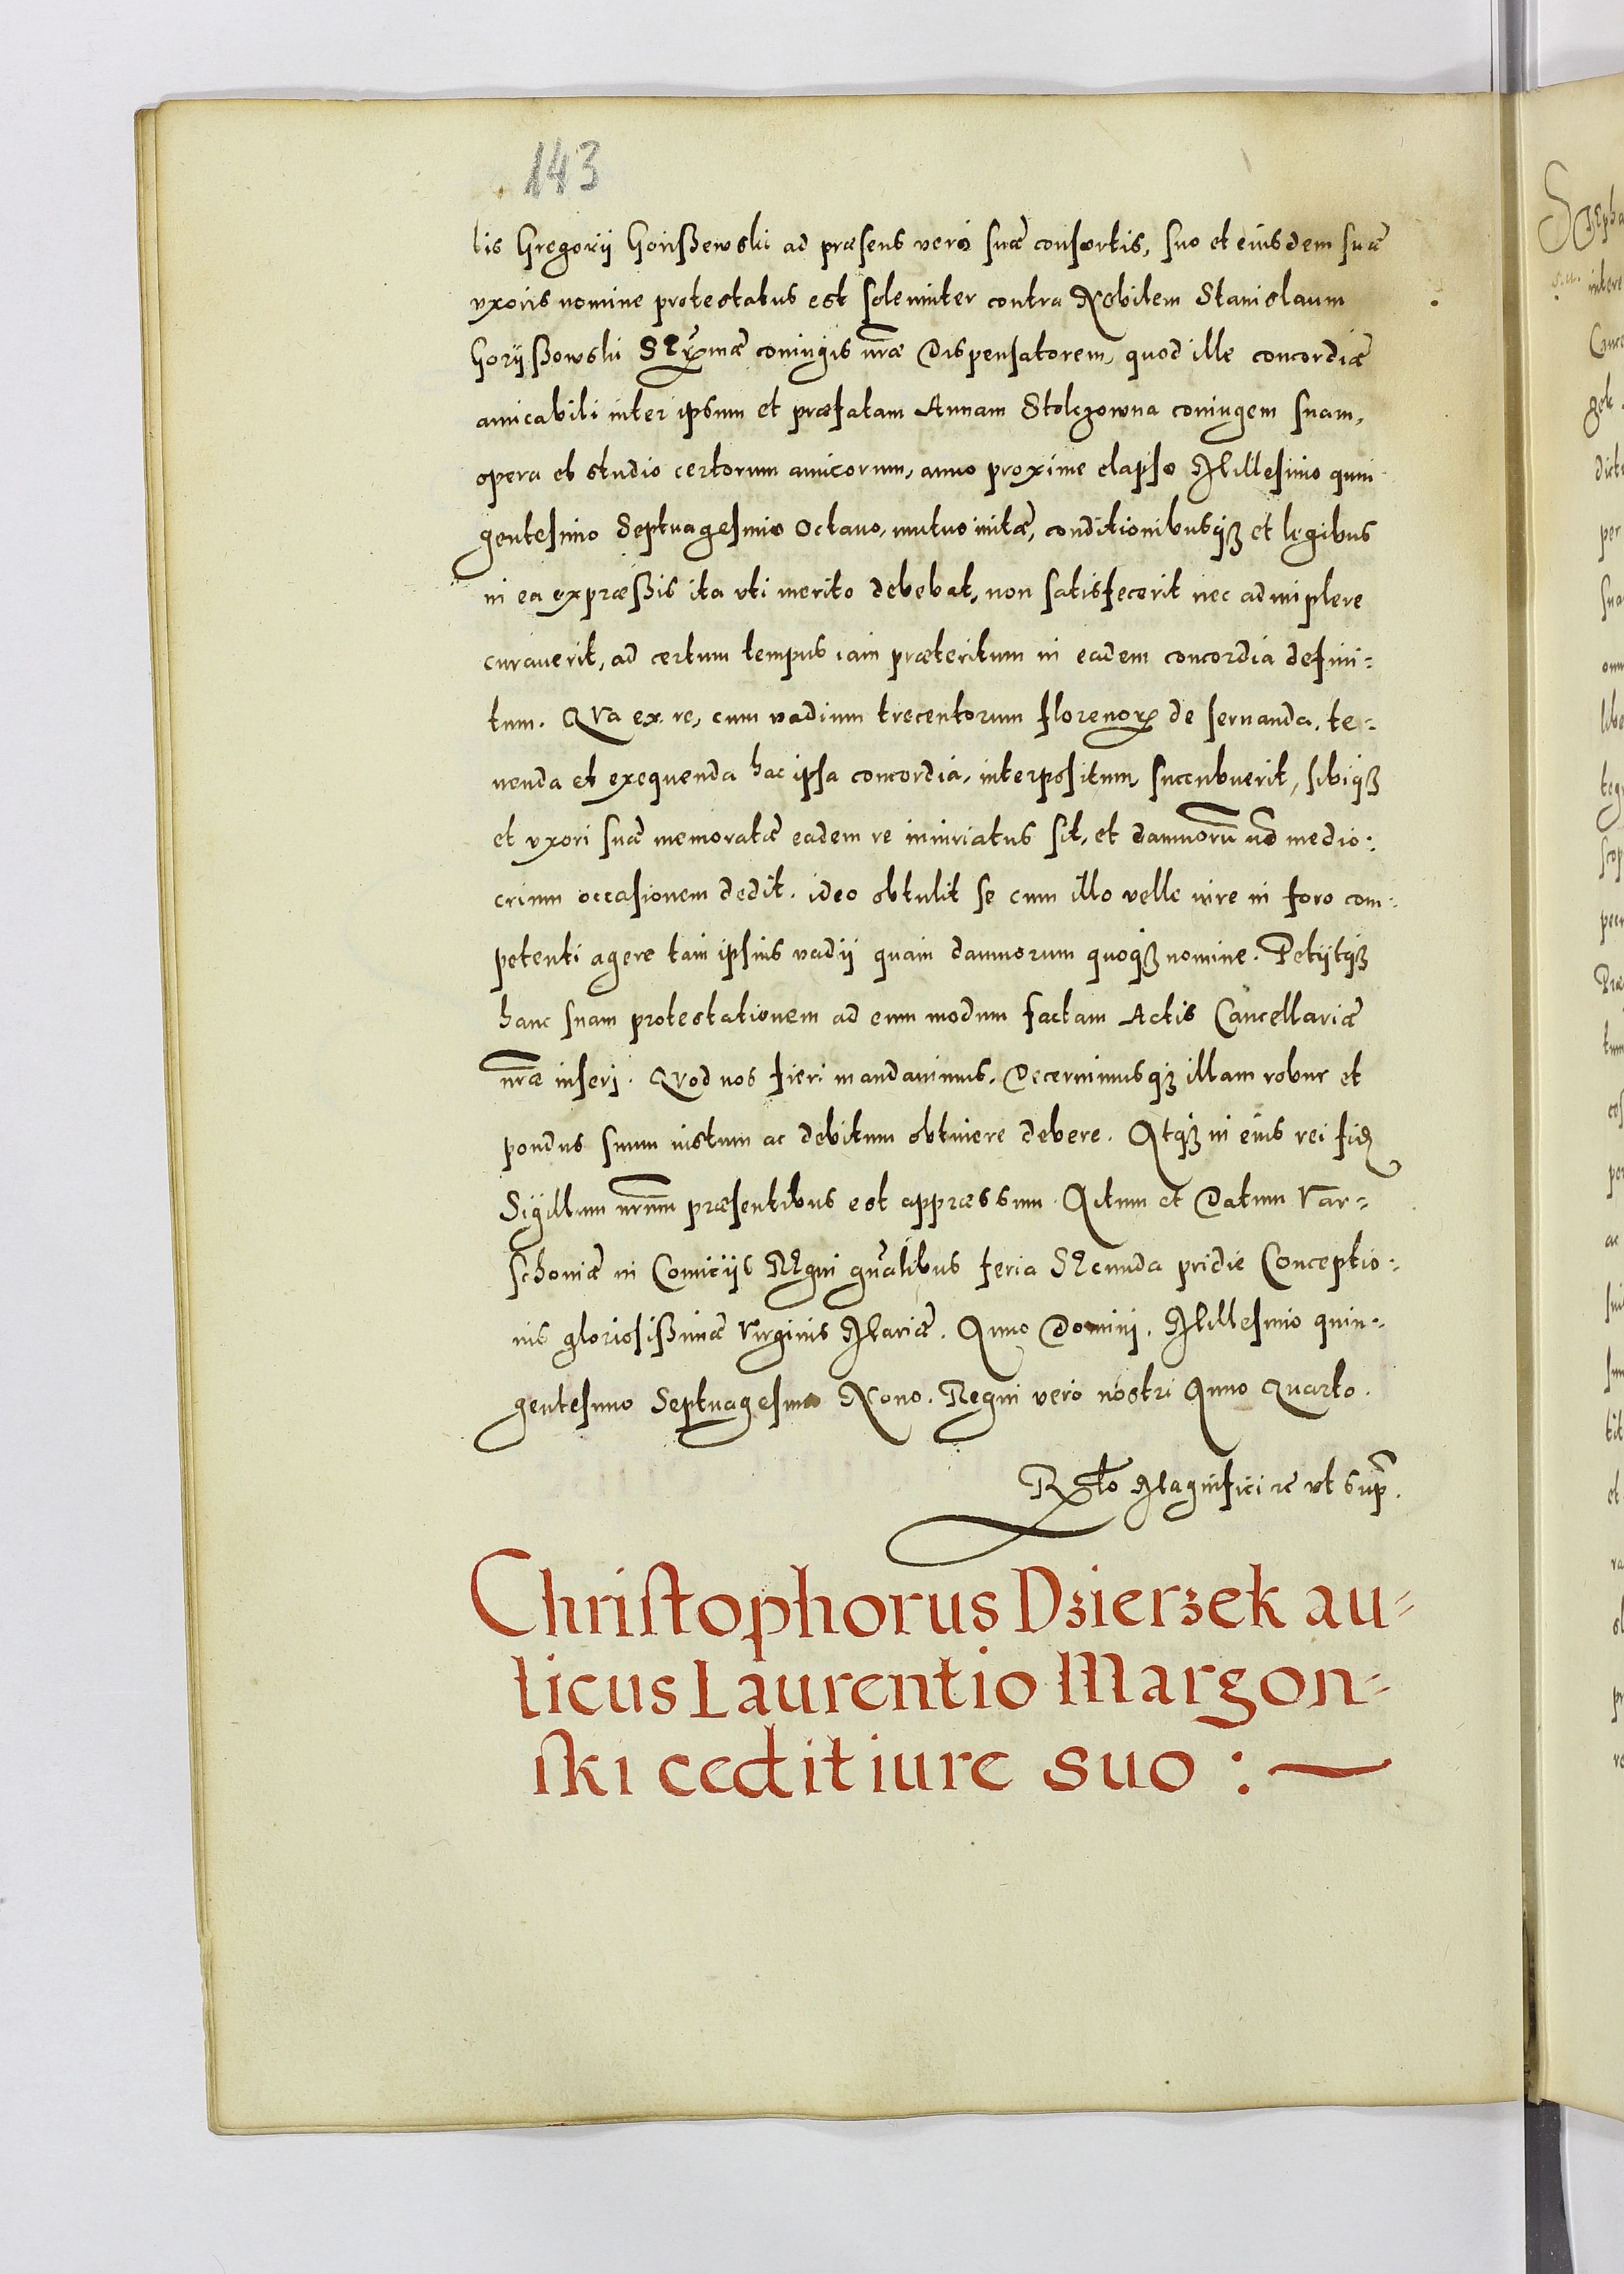 143
lis Gregorij Gonßewski ad præsens vero suæ consortis, suo et eiusdem suæ
vxoris nomine protestatus est solenniter contra Nobilem Stanislaum
Gorijßowski coniugis nræ Dispensatorem, quod ille concordiæ
amicabili inter ipsum et præfatam Annam Stolczowna coniugem suam,
opera et studio certorum amicorum, anno proxime elapso Millesimo quin
gentesimo Septuagesimo Octauo, mutuo initæ, conditionibusqȝ et legibus
in ea expræßis ita vti merito debebat, non satisfecerit nec adimplere
curauerit, ad certum tempus iam præteritum in eadem concordia defini=
tum. Qva ex re, cum vadium trecentorum florenorꝝ de seruanda, te=
nenda et exequenda hac ipsa concordia, interpositum, succubuerit, sibiqȝ
et vxori suæ memoratæ eadem re iniuriatus sit, et damnorū nō medio:
crium occasionem dedit. ideo obtulit se cum illo velle iure in foro com:
petenti agere tam ipsius vadij quam damnorum quoqȝ nomine. Petijtqȝ
hanc suam protestationem ad eum modum factam Actis Cancellariæ
nræ inserj. Qvod nos fieri mandauimus. Decernimusqȝ illam robur et
pondus suum iustum ac debitum obtinere debere. Atqȝ in eius rei fidē
Sigillum nrum præsentibus est appræssum. Actum et Datum Var=
schouiæ in Comicijs Regni gnālibus feria Secunda pridie Conceptio:
nis gloriosißimæ Virginis Mariæ. Anno Dominj. Millesimo quin=
gentesimo Septuagesimo Nono. Regni vero nostri Anno Qvarto.
Rlto Magnifici ꝛc vt sup.
Christophorus Dzierzek au=
licus Laurentio Margon=
ski cedit iure suo :